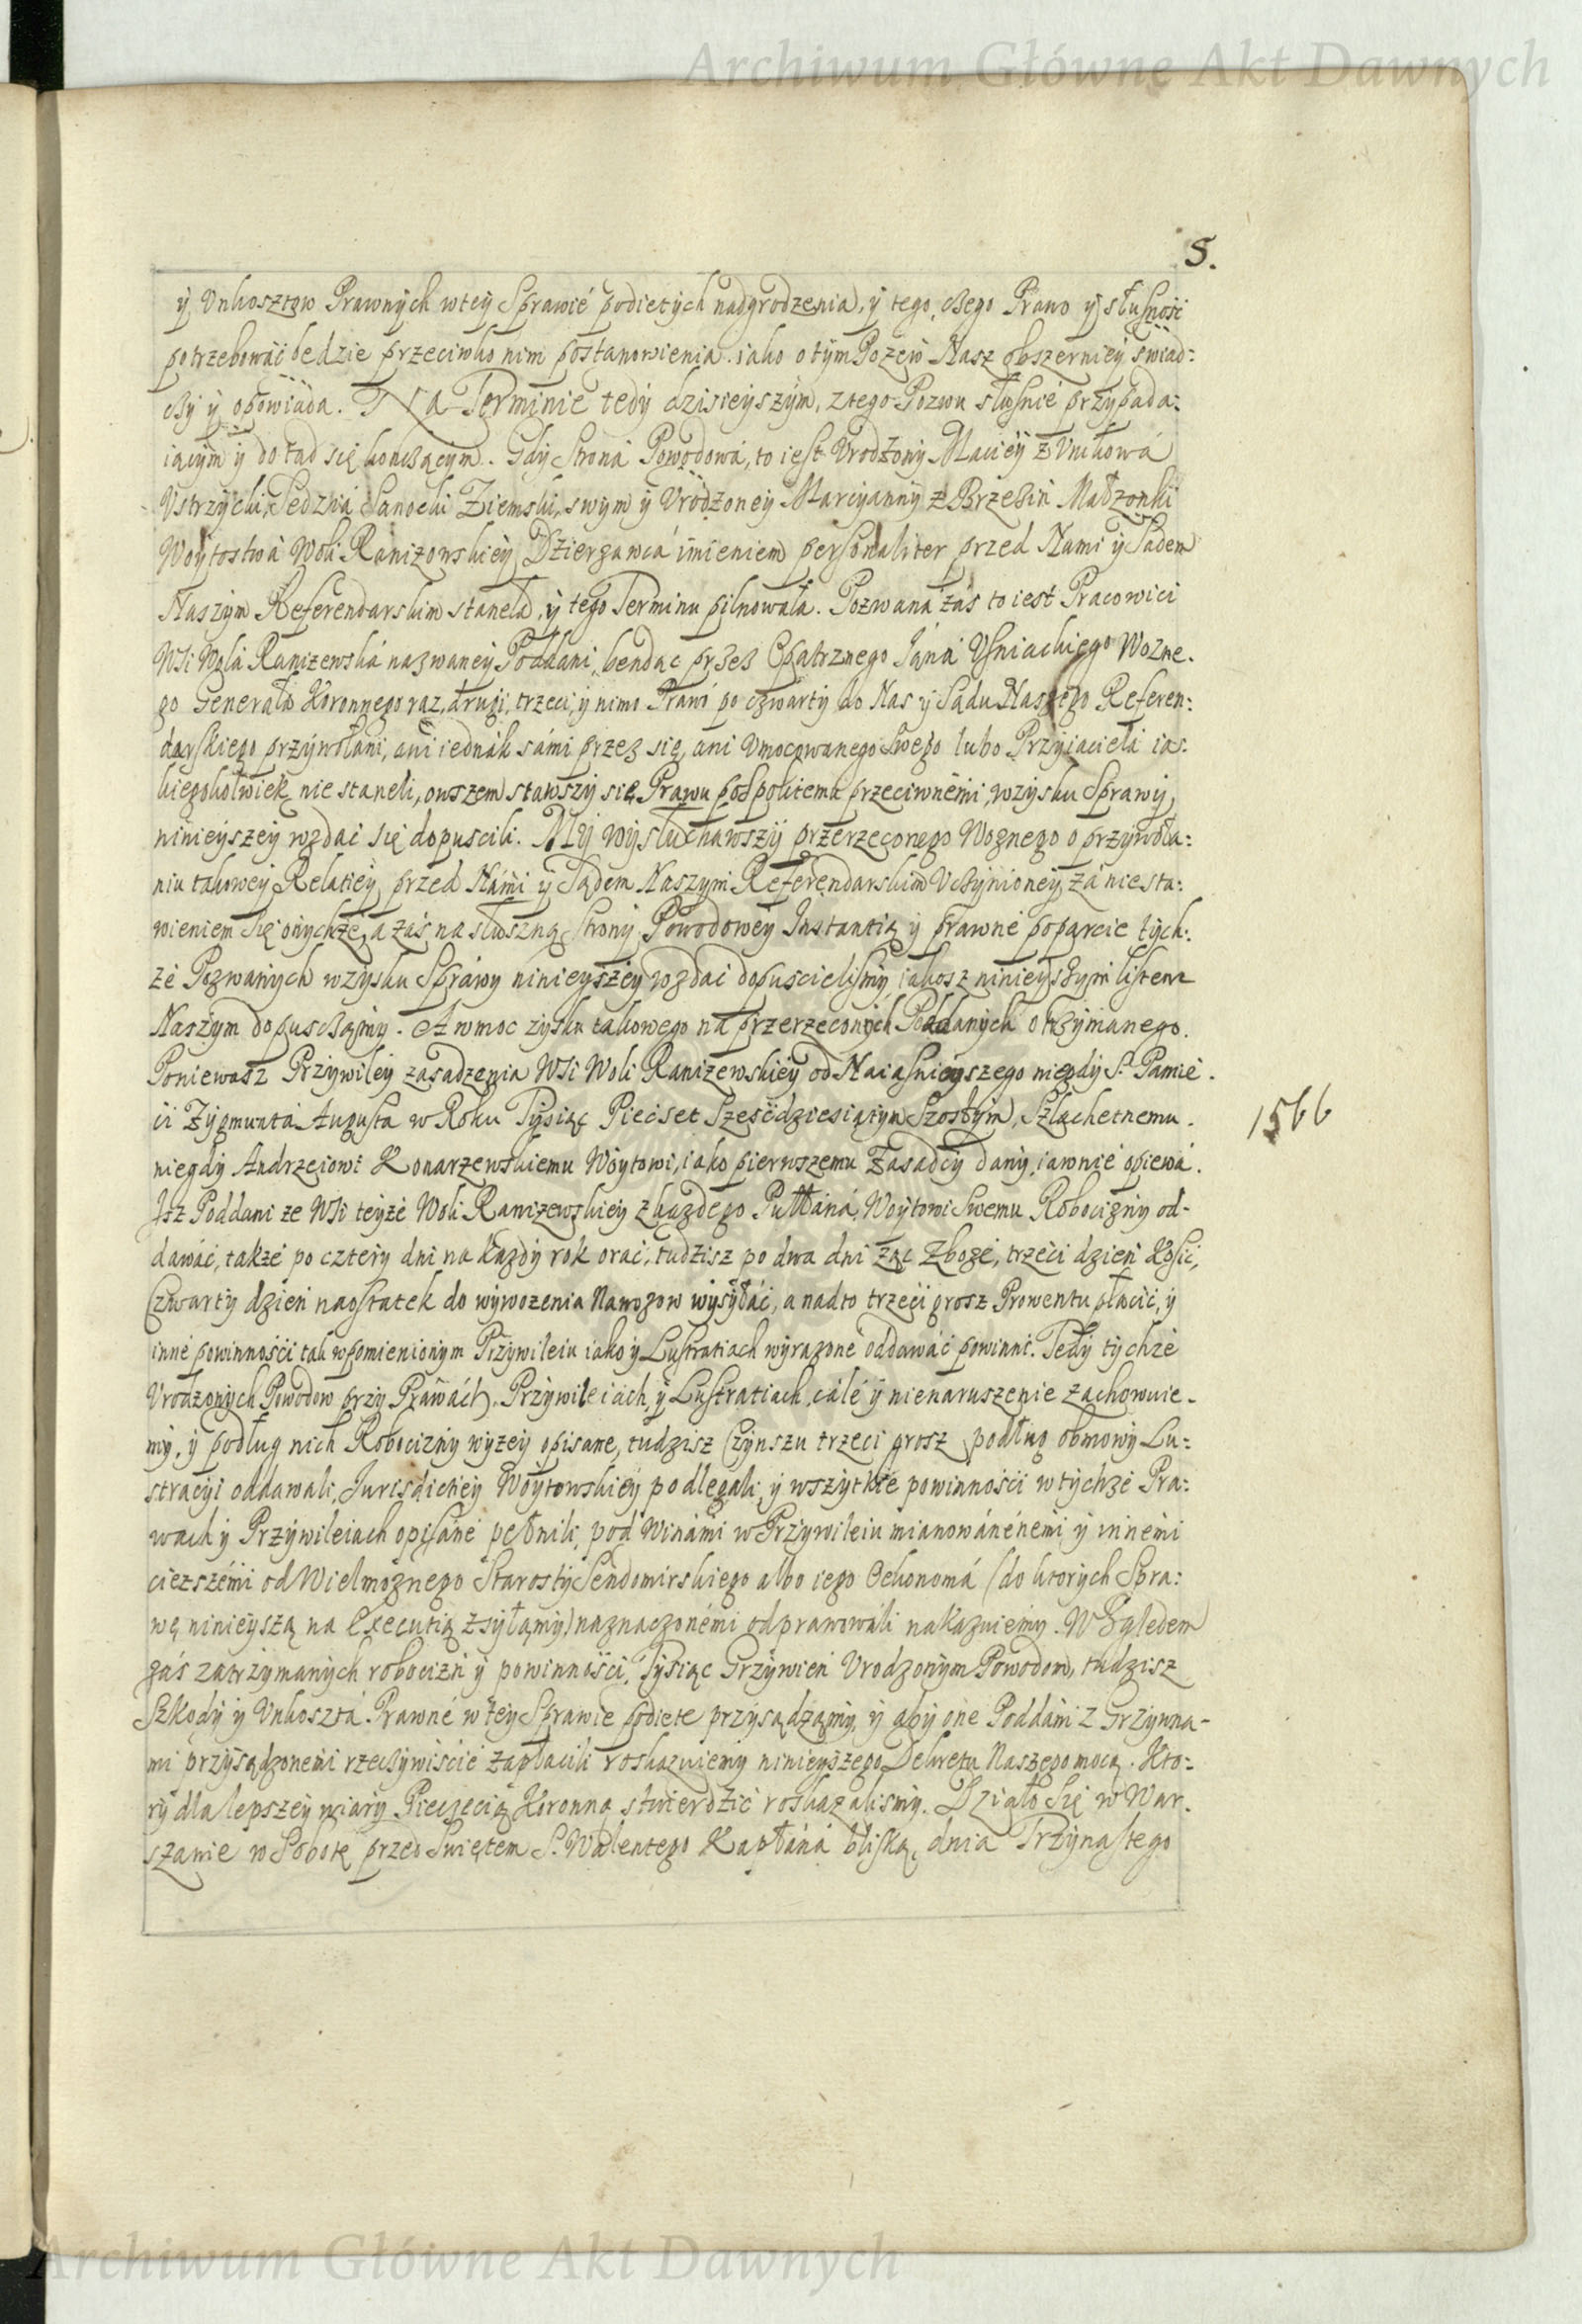 Archiwum Główne Akt Dawnych
5.
ÿ Vnkosztow Prawnÿch wteÿ Sprawié podietÿch nadgrodzenia, ÿ tego, czego Prawo ÿ słusnosc
potrzebować bedzie przeciwko nim postanowienia. iako o tÿm Pozew Nasz obszernieÿ swiad:
czÿ ÿ opowiada. Na Terminie tedÿ dzisieÿszÿm, z tego Pozwu słusnie przÿpada:
iącÿm ÿ do tąd się konczącÿm. Gdÿ Strona Powodowa, to iest Vrodzonÿ Macieÿ z Vnikowá
Vstrzÿcki Sedzia Sanocki Ziemski, swÿm ÿ Vrodzoneÿ Marcÿannÿ z Brzezin Małzonki
Woÿtostwa Woli Ranizowskieÿ Dzierzawca imieniem personaliter przed Nami ÿ Sadem
Naszÿm Referendarskim staneła, ÿ tego Terminu pilnowała. Pozwana zas to iest Pracowici
WSi Wola Ranizewska nazwaneÿ Poddani, bendąc przez Opatrznego Jana Vsniackiego Wozne.
go Generała Koronnego raz, drugi, trzeci, ÿ nimo Prawo po czwartÿ do Nas ÿ Sądu Naszego Referen:
darskiego przÿwołani, ani iednak sámi przez się, ani Vmocowanego Swego lubo Przÿiaciela iak:
kiegokolwiek nie staneli, owszem stawszÿ się Prawu pospolitemu przeciwnemi, w zÿsku Sprawÿ
ninieÿszeÿ wzdać się dopuscili. Mÿ wÿsłuchawszÿ przerzeczonego Woznego o przÿwoła:
niu takoweÿ Relatieÿ przed Námi ÿ Sądem Naszÿm Referendarskim Vczÿnioneÿ, zá niesta:
wieniem Się onÿchze, a zás na słuszną Stronÿ Powodoweÿ Instantią ÿ prawne poparcie tÿch:
ze Pozwanÿch w zÿsku Sprawÿ ninieÿszeÿ wzdać dopuscielismÿ, iakosz ninieÿszÿm listem
Naszÿm dopuszczamÿ. A w moc zÿsku takowego na przerzeczonÿch Poddanÿch otrzÿmanego.
Poniewasz Przÿwileÿ zasadzenia WSi Woli Ranizewskieÿ od Naiasnieÿszego niegdÿ S. Pamie.
ci Zÿgmunta Augusta w Roku Tÿsiąc Piecset Szescdziesiątÿm Szostÿm, Szlachetnemu.
1566
niegdÿ Andrzeiowi Konarzewskiemu Woÿtowi, iako pierwszemu Zasadcÿ danÿ, iawnie opiewa.
Isz Poddani ze WSi teÿze Woli Ranizewskieÿ z kazdego Pułłáná, Woÿtowi Swemu Robociznÿ od-
dawáć, takze po czterÿ dni na kazdÿ rok orac, tudzisz po dwa dni ząc Zboze, trzeci dzien Kosic,
Czwartÿ dzien naostatek do wÿwozenia Nawozow wÿsÿłáć, a nadto trzeci grosz Prowentu płacić, ÿ
inne powinnosci tak w pomienionÿm Przÿwileiu iako ÿ Lustratiach wÿrazone oddawáć powinni. Tedÿ tÿchze
Vrodzonÿch Powodow przÿ Prawách, Przÿwileiách, ÿ Lustratiach, cále ÿ nienaruszenie zachowuie-
mÿ, ÿ podług nich Robociznÿ wÿzeÿ opisane, tudzisz Czÿnszu trzeci grosz podług obmowÿ Lu:
stracÿi oddawali, Jurisdictieÿ Woÿtowskieÿ podlegali, ÿ wszÿtkie powinnosci w tÿchze Pra:
wach ÿ Przÿwileiach opisáne pełnili, pod Winámi w Przÿwileiu mianowánénemi ÿ innemi
cieższémi od Wielmoznego Starostÿ Sendomirskiego albo iego Oekonomá (do ktorÿch Spra:
wę ninieÿszą na Executią zsÿłamÿ) naznaczonémi odprawowáli nakazuiemÿ. Wzgledem
zás zatrzÿmanÿch robocizn ÿ powinnosci, Tÿsiąc Grzÿwien Vrodzonÿm Powodom, tudzisz
Szkodÿ ÿ Vnkosztá Prawné w teÿ Sprawie podiete przÿsądzamÿ, ÿ abÿ one Poddáni z Grzÿwna-
mi przÿsądzonemi rzeczÿwiscie zapłacili roskazuiemÿ ninieÿszego Dekretu Naszego mocą. Kto:
rÿ dla lepszeÿ wiarÿ Pieczęcią Koronną stwierdzić roskazalismÿ. Działo Się w War.
szawie w Sobotę przed Swiętem S. Walentego Kapłáná bliską, dnia Trzÿnastego
Archiwum Główne Akt Dawnych